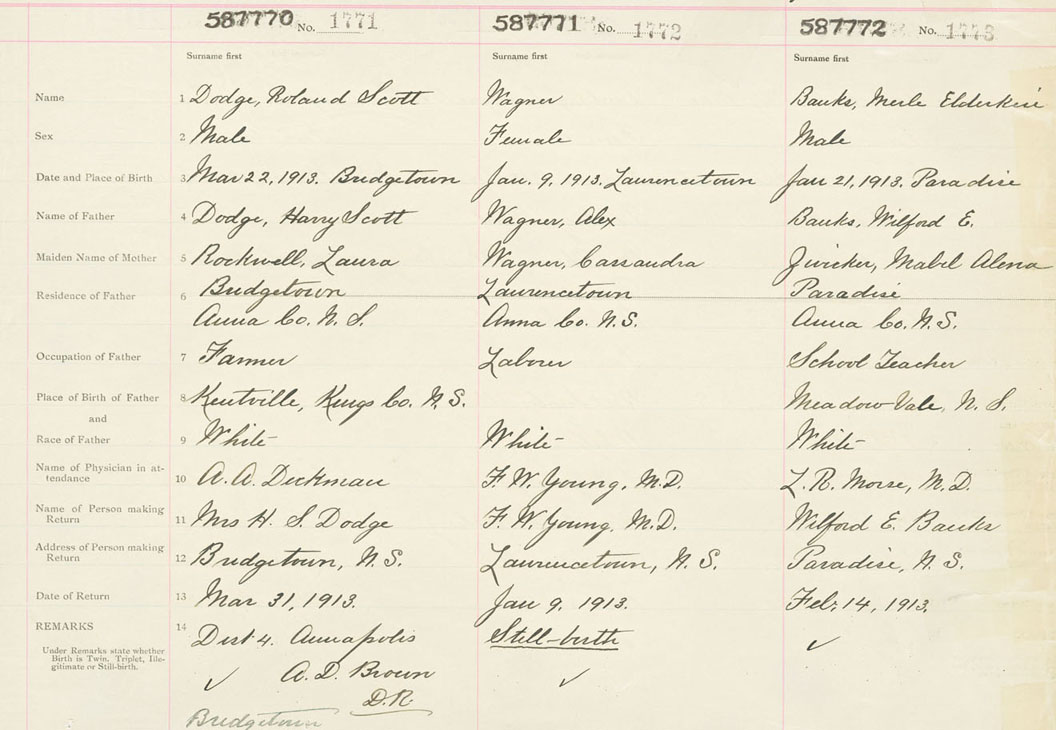 587770 No. 1771 587771 No. 1772 587772 No. 1773
Surname first Surname first Surname first
Name 1 Dodge, Roland Scott Wagner Banks, Merle Elderkin
Sex 2 Male Female Male
Date and Place of Birth 3 Mar 22, 1913. Bridgetown Jan. 9, 1913. Laurencetown Jan 21, 1913. Paradise
Name of Father 4 Dodge, Harry Scott Wagner, Alex Banks, Wilford E.
Maiden Name of Mother 5 Rockwell, Laura Wagner, Cassandra Zwicker, Mabel Alena
Residence of Father 6 Bridgetown Laurencetown Paradise
Anna Co. N. S. Anna Co. N.S. Anna Co. N.S.
Occupation of Father 7 Farmer Laborer School Teacher
Place of Birth of Father 8 Kentville, Kings Co. N.S. Meadow Vale, N. S.
and
Race of Father 9 White White White
Name of Physician in at-
tendance 10 A. A. Deckman F. W. Young, M.D. L. R. Morse, M.D.
Name of Person making
Return 11 Mrs H. S. Dodge F. W. Young, M.D. Wilford E. Banks
Address of Person making
Return 12 Bridgetown, N.S. Laurencetown, N.S. Paradise, N.S.
Date of Return 13 Mar 31, 1913. Jan 9, 1913. Feb. 14, 1913.
REMARKS 14 Dist 4. Annapolis Still-birth
Under Remarks state whether
Birth is Twin, Triplet, Ille-
gitimate or Still-birth.
A. D. Brown
D.R.
Bridgetown